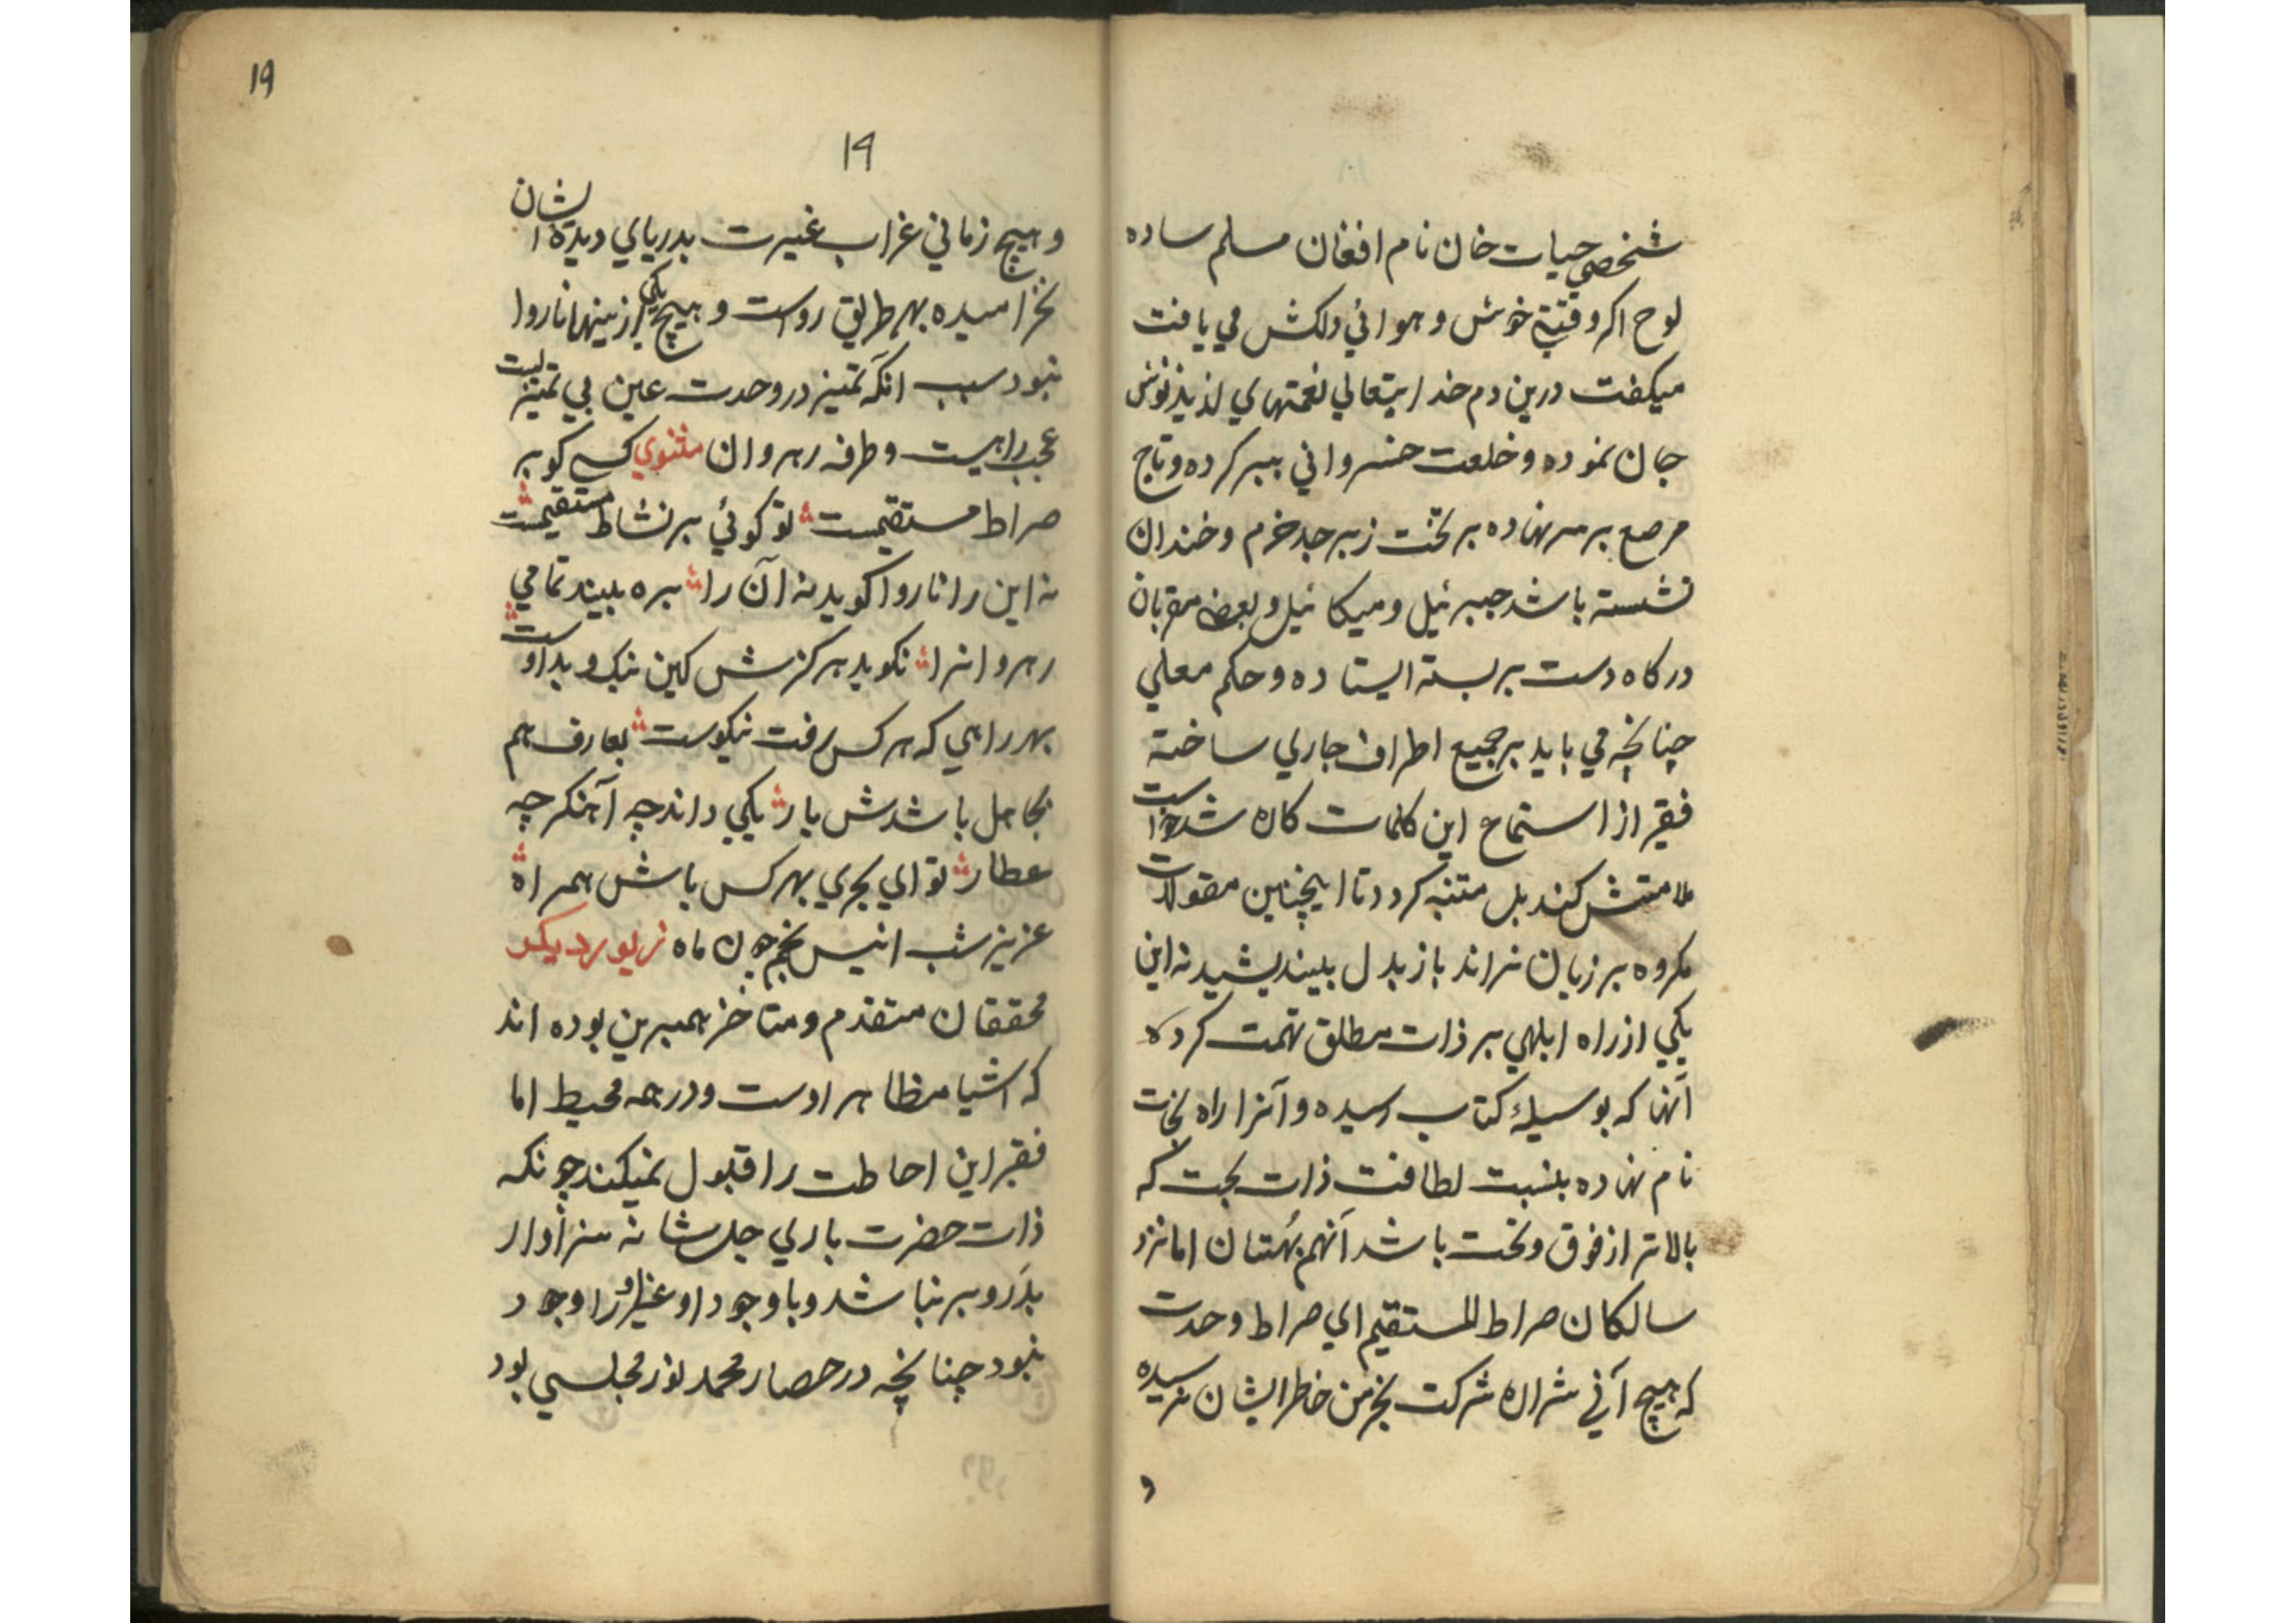 شخصي حيات خان نام افغان مسلم ساده
لوح اكر وقتي خوش و هوائي دلكش مي يافت
ميكفت درين دم خدايتعالي نعمتهاي لذيذ نوش
جان نموده و خلعت خسرواني ببر كرده و تاج
مرصع بر سر نهاده بر تخت زبرجد خرم و خندان
نشسته باشد جبرئيل و ميكائيل و بعضے مقربان
دركاه دست بر بسته ايستاده و حكم معلي
چنانچه مي بايد بر جميع اطراف جاري ساخته
فقير از استماع اين كلمات كاره شد خواست
ملامتش كند بل متنبه كردد تا اينچنين مقولات
مكروه بر زبان نراند باز بدل بينديشيد نه اين
يكي از راه ابلهي بر ذات مطلق تهمت كرده
آنها كه بوسيلهٔ كتاب رسيده و آنرا راه نجات
نام نهاده بنسبت لطافت ذات بحت كه
بالاتر از فوق و تحت باشد آنهم بُهتان اما نزد
سالكان صراط المستقيم اي صراط وحدت
كه هيچ آني شراره شركت بخرمن خاطر ايشان نرسيده
و
١٩
١٩
و هيچ زماني غراب غيرت بدرياي ديده ايشان
نخراميده بهر طريق رواست و هيچ يكي از ينها ناروا
نبود سبب انكه تميز در وحدت عين بي تميزيست
عجب راهيست و طرفه رهروان مثنوي كسے كو بر
صراط مستقيمست تو كوئي بر نشاط مستقيمست
نه اين را ناروا كويد نه آن را بره بيند تمامي
رهروانرا نكويد هركزش كين نيك و بد اوست
بهر راهي كه هر كس رفت نيكوست بعارف هم
بجاهل باشدش يار يكي داند چه آهنكر چه
عطار تو اي بحري بهر كس باش همراه
عزيز شب انيس نجم چون ماه زيور ديكر
محققان متقدم و متاخر همبرين بوده اند
كه اشيا مظاهر اوست و در همه محيط اما
فقير اين احاطت را قبول نميكند چونكه
ذات حضرت باري جل شانه سزاوار
بدَرو بر نباشد و با وجود او غير او را وجود
نبود چنانچه در حصار محمد نور مجلسي بود